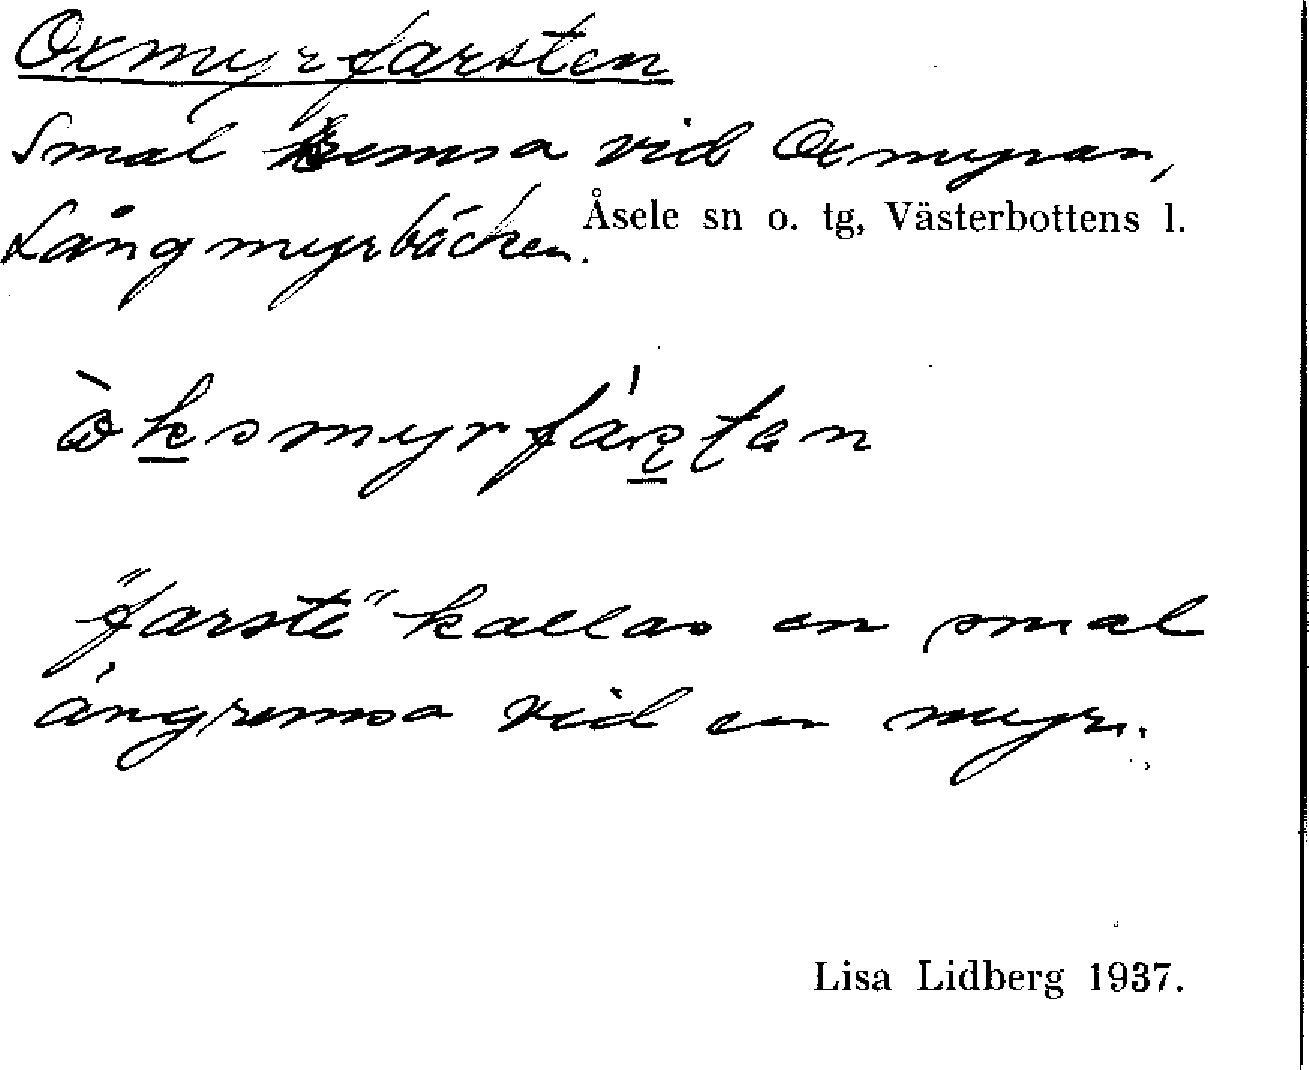 Oxmyrfarsten
Smal remsa vid Oxmyran,
Åsele sn o. tg, Västerbottens l.
Långmyrbäcken.
"farste" kallas en smal
ängremsa vid en myr.
Lisa Lidberg 1937.